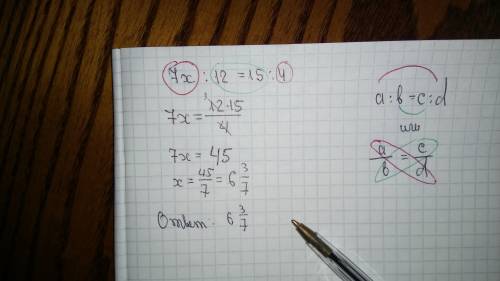 7x : 12 = 15 : 4
7x = 12·15 / 4
3
7x = 45
x = 45/7 = 6 3/7
Ответ: 6 3/7
a : b = c : d
или
a/b = c/d